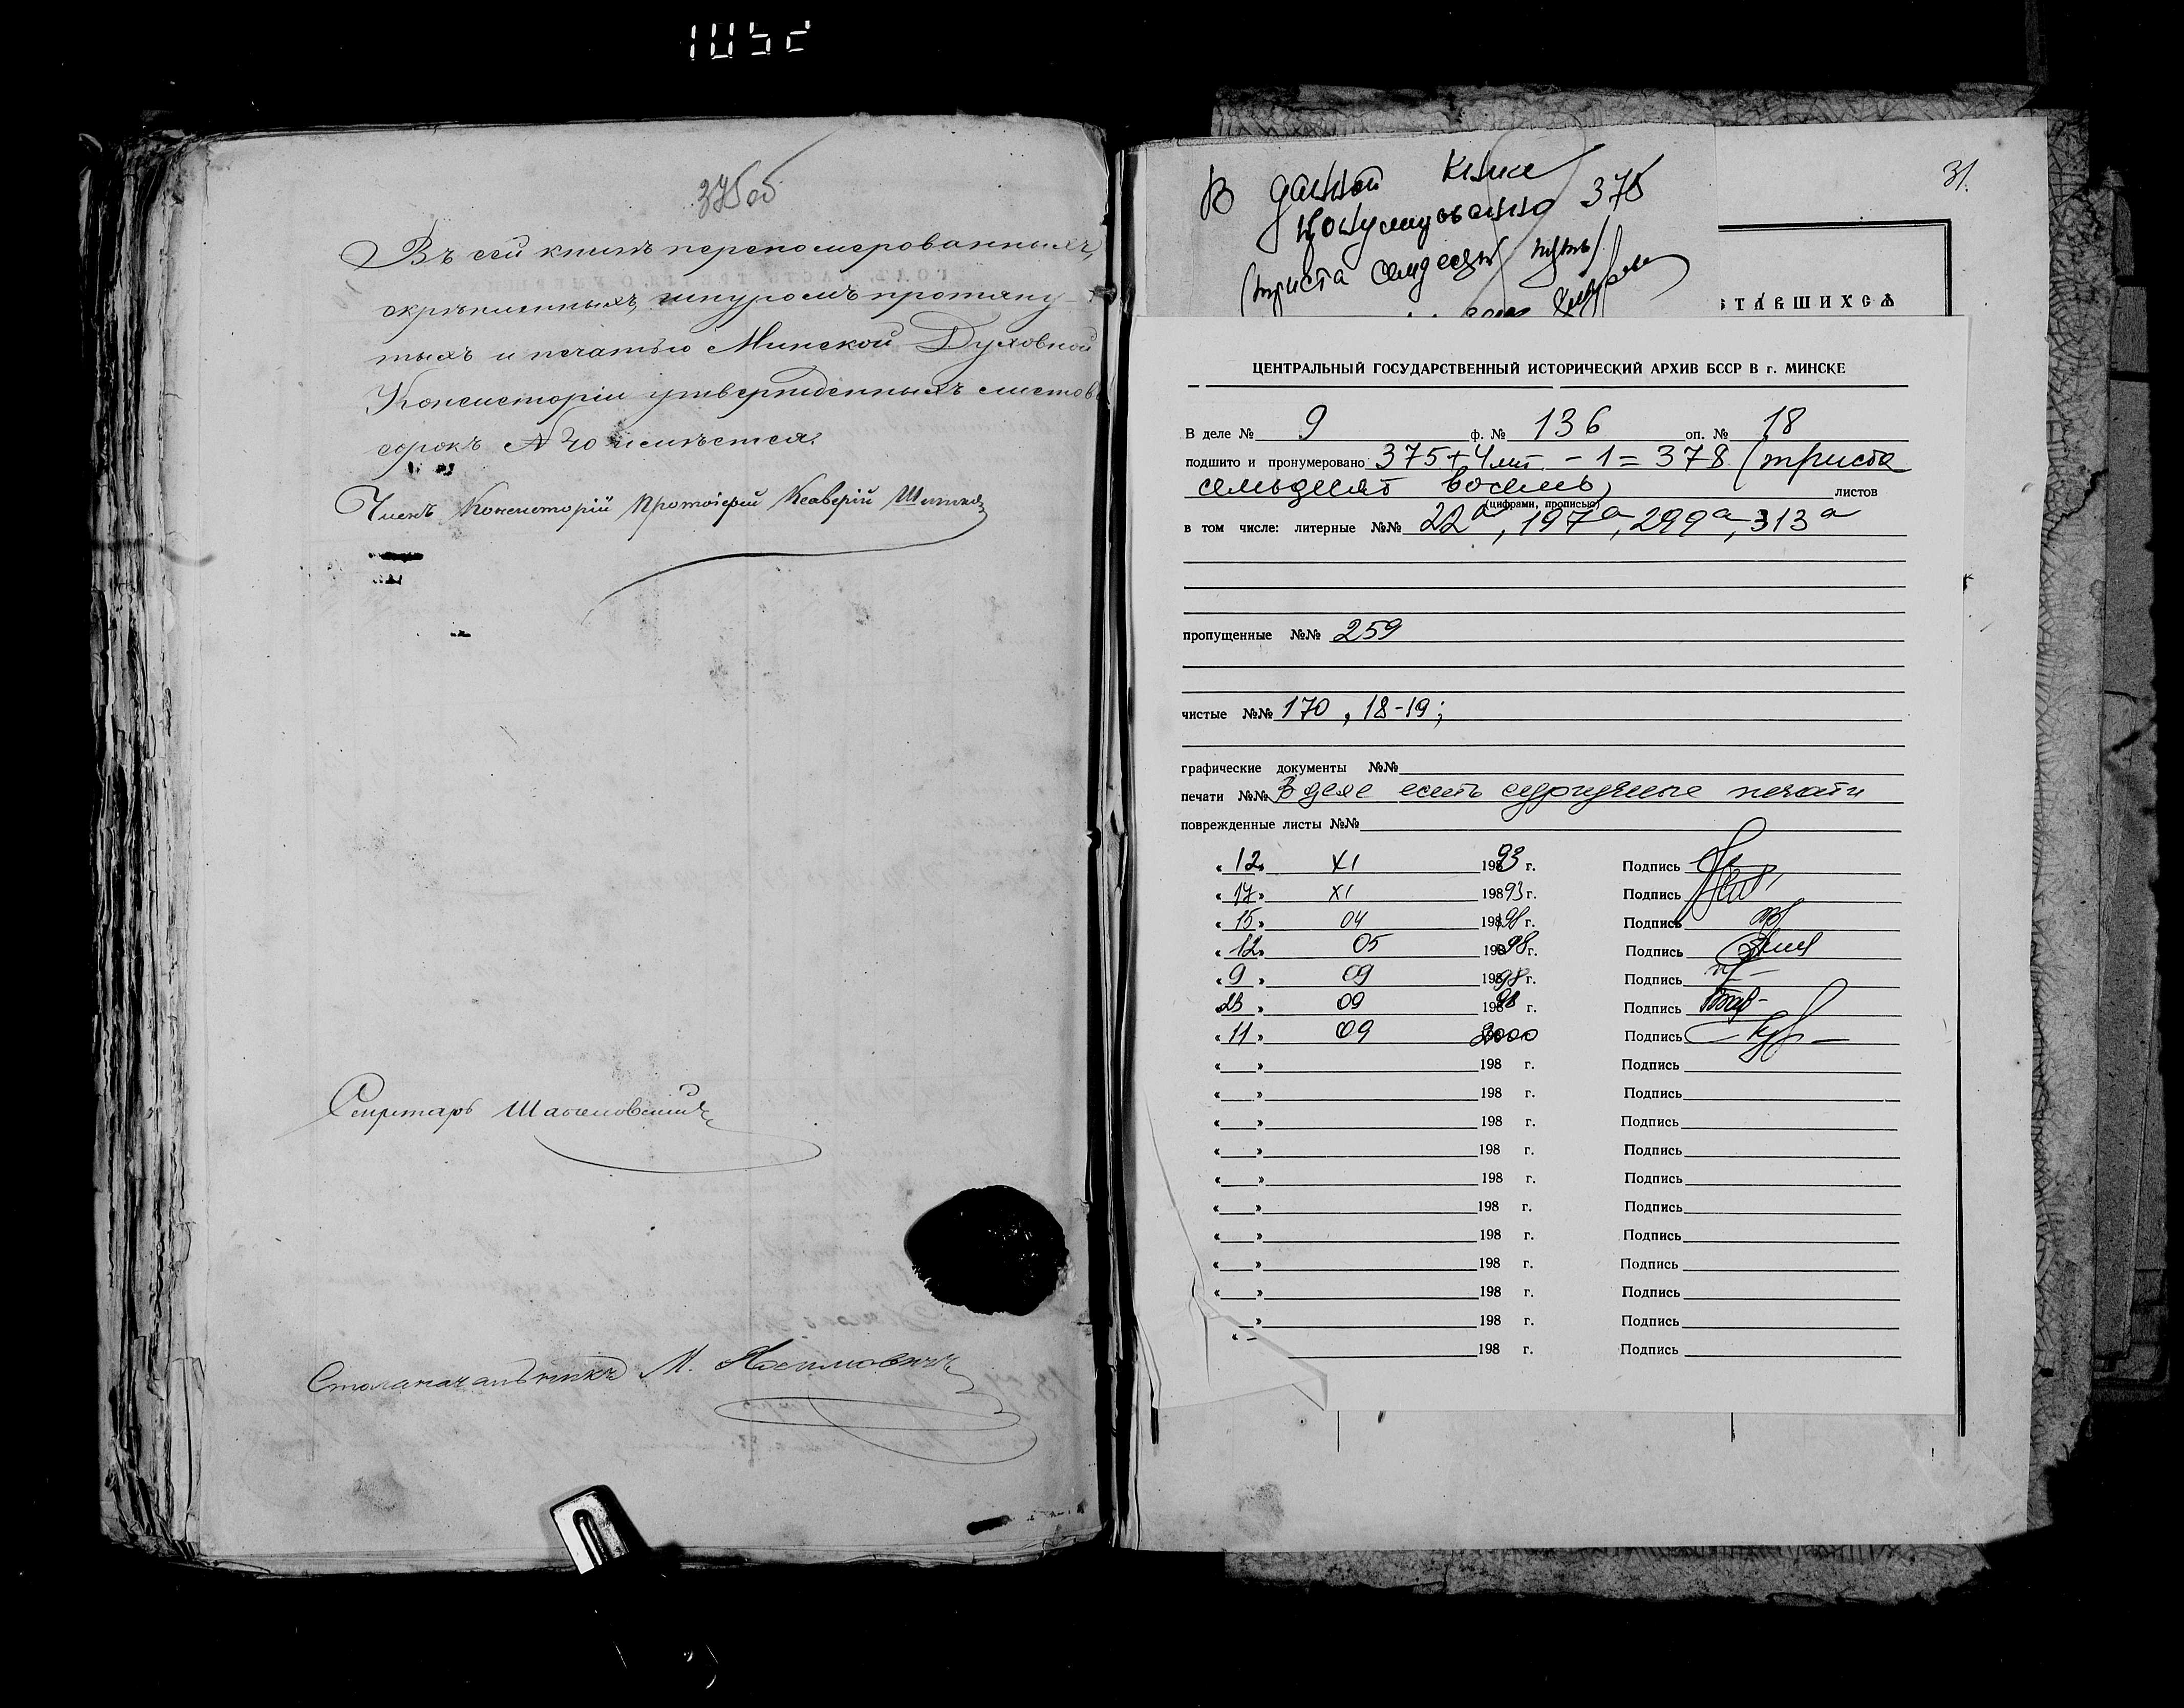 1052
375об
Въ сей книгѣ перепомерованныхъ,
скрѣпленныхъ, шнуромъ протяну-
тыхъ и печатью Минской Духовной
Консисторіи утвержденныхъ листовъ
сорокъ № 40 имѣется.
Членъ Консисторіи Протоіерей Ксаверій
Секретарь
Столоначальникъ М.
31.
В данной книге
пронумеровано 375
(триста семдесят пять)
СТАВШИХСЯ
ЦЕНТРАЛЬНЫЙ ГОСУДАРСТВЕННЫЙ ИСТОРИЧЕСКИЙ АРХИВ БССР В г. МИНСКЕ
В деле № 9 ф. № 136 оп. № 18
подшито и пронумеровано 375+4лит. - 1 = 378 (триста
семьдесят восемь) листов
(цифрами, прописью)
в том числе: литерные №№ 22а, 197а, 299а, 313а
пропущенные №№ 259
чистые №№ 170, 18-19;
графические документы №№
печати №№ В деле есть сургучные печати
поврежденные листы №№
«12» XI 1993 г. Подпись
«17» XI 19893 г. Подпись
«15» 04 1998 г. Подпись
«12» 05 1998 г. Подпись
«9» 09 1998 г. Подпись
«23» 09 1998 г. Подпись
«11» 09 2000 Подпись
« » 198 г. Подпись
« » 198 г. Подпись
« » 198 г. Подпись
« » 198 г. Подпись
« » 198 г. Подпись
« » 198 г. Подпись
« » 198 г. Подпись
« » 198 г. Подпись
« » 198 г. Подпись
» 198 г. Подпись
« 198 г. Подпись